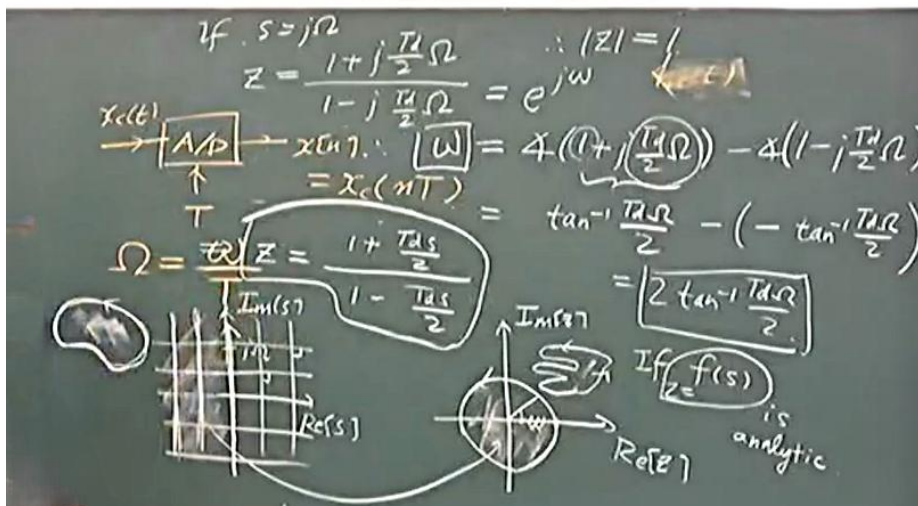 If s = jΩ
z = (1 + j Td/2 Ω) / (1 - j Td/2 Ω) = e^{jω}
∴ |z| = 1.
xc(t) → A/D → x[n]
= xc(nT)
↑
T
∴ ω = ∡(1 + j(Td/2 Ω)) - ∡(1 - j Td/2 Ω)
= tan⁻¹ TdΩ/2 - (- tan⁻¹ TdΩ/2)
= 2 tan⁻¹ TdΩ/2.
Ω =
z = (1 + Tds/2) / (1 - Tds/2)
Im(s)
jΩ
Re[s]
Im[z]
ω
Re[z]
If z = f(s)
is
analytic